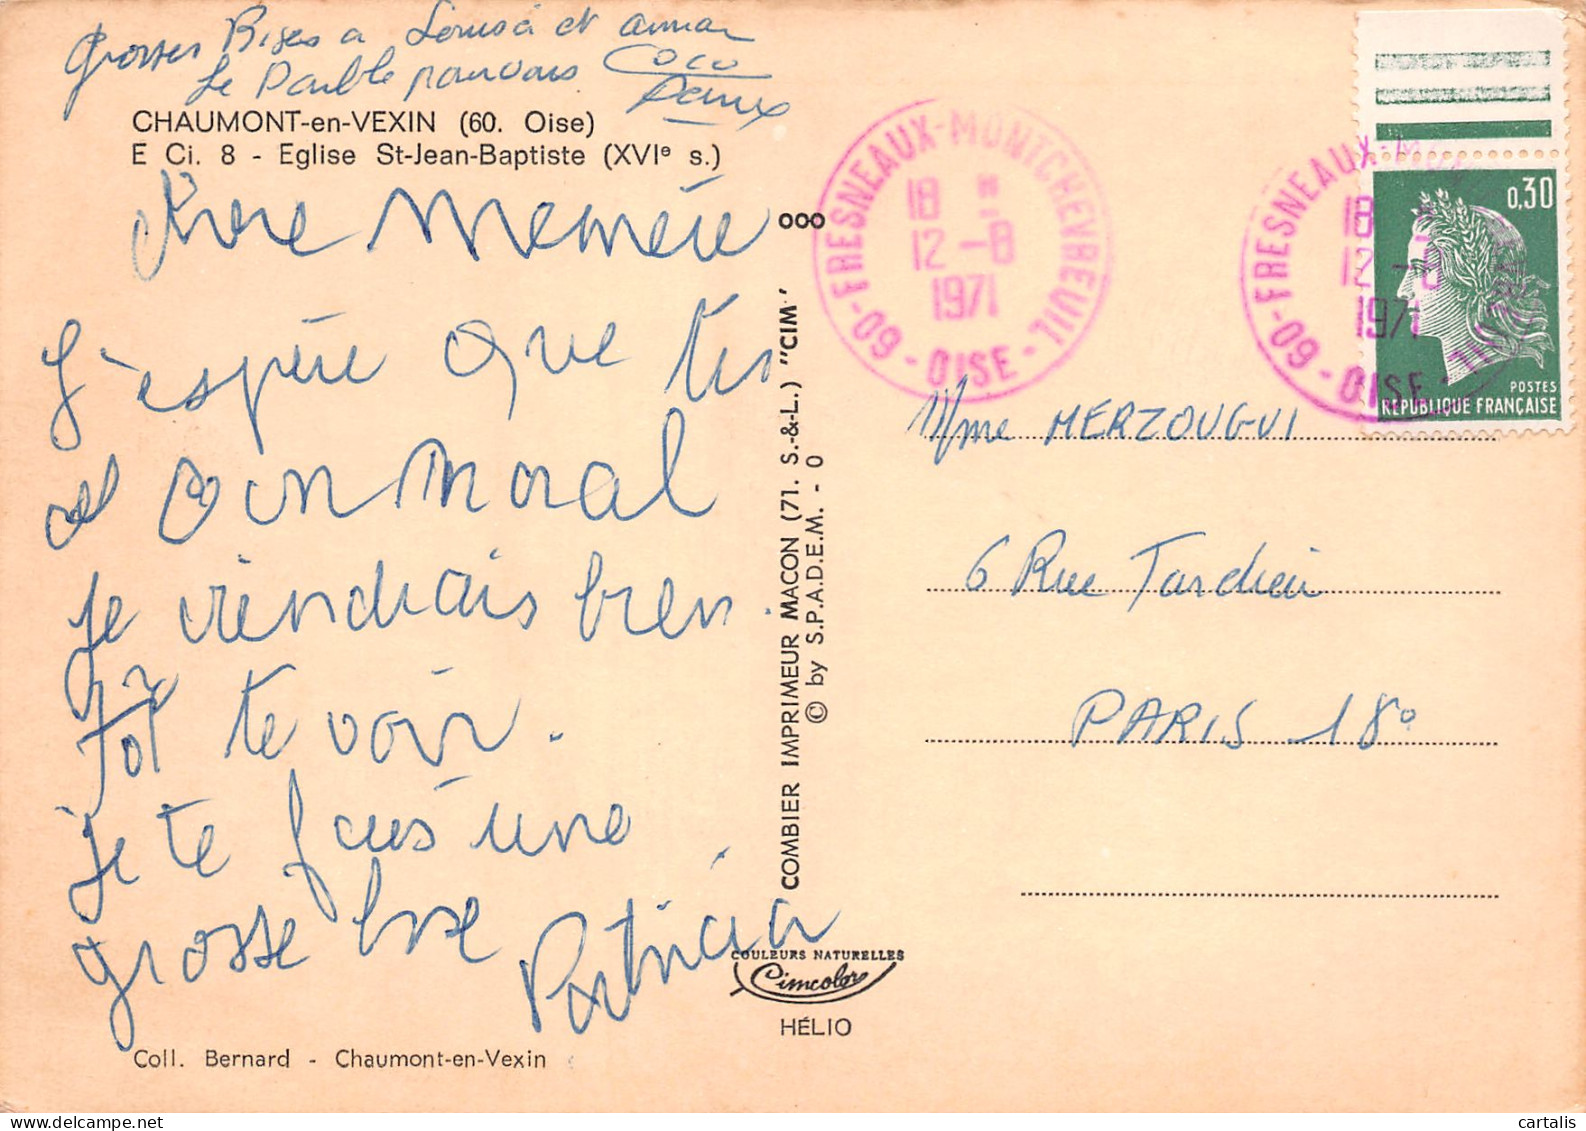 Grosses Bises a Louisa et
Le
Coco
CHAUMONT-en-VEXIN (60. Oise)
E Ci. 8 - Eglise St-Jean-Baptiste (XVIe s.)
Chere Memére
J'espére que tu
bon moral
je viendrais bien
tot te voir.
je te fais une
grosse bise
Patricia
Coll. Bernard - Chaumont-en-Vexin
COMBIER IMPRIMEUR MACON (71. S.-&-L.) "CIM"
© by S.P.A.D.E.M. - 0
ooo
COULEURS NATURELLES
Cimcolor
HÉLIO
60 - FRESNEAUX-MONTCHEVREUIL - OISE
18 H
12 -8
1971
60 - FRESNEAUX-MON
18
12 -8
1971
OISE
0,30
POSTES
REPUBLIQUE FRANÇAISE
Mme MERZOUGUI
6 Rue Tardieu
PARIS 18°
cartalis